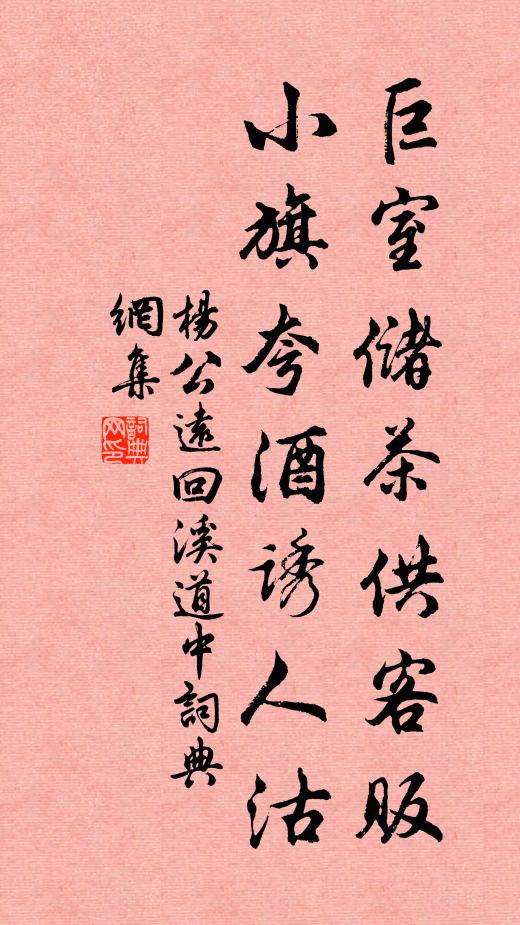 巨室儲茶供客販
小旗夸酒誘人沽
楊公遠回溪道中詞典
網集
詞典
网印